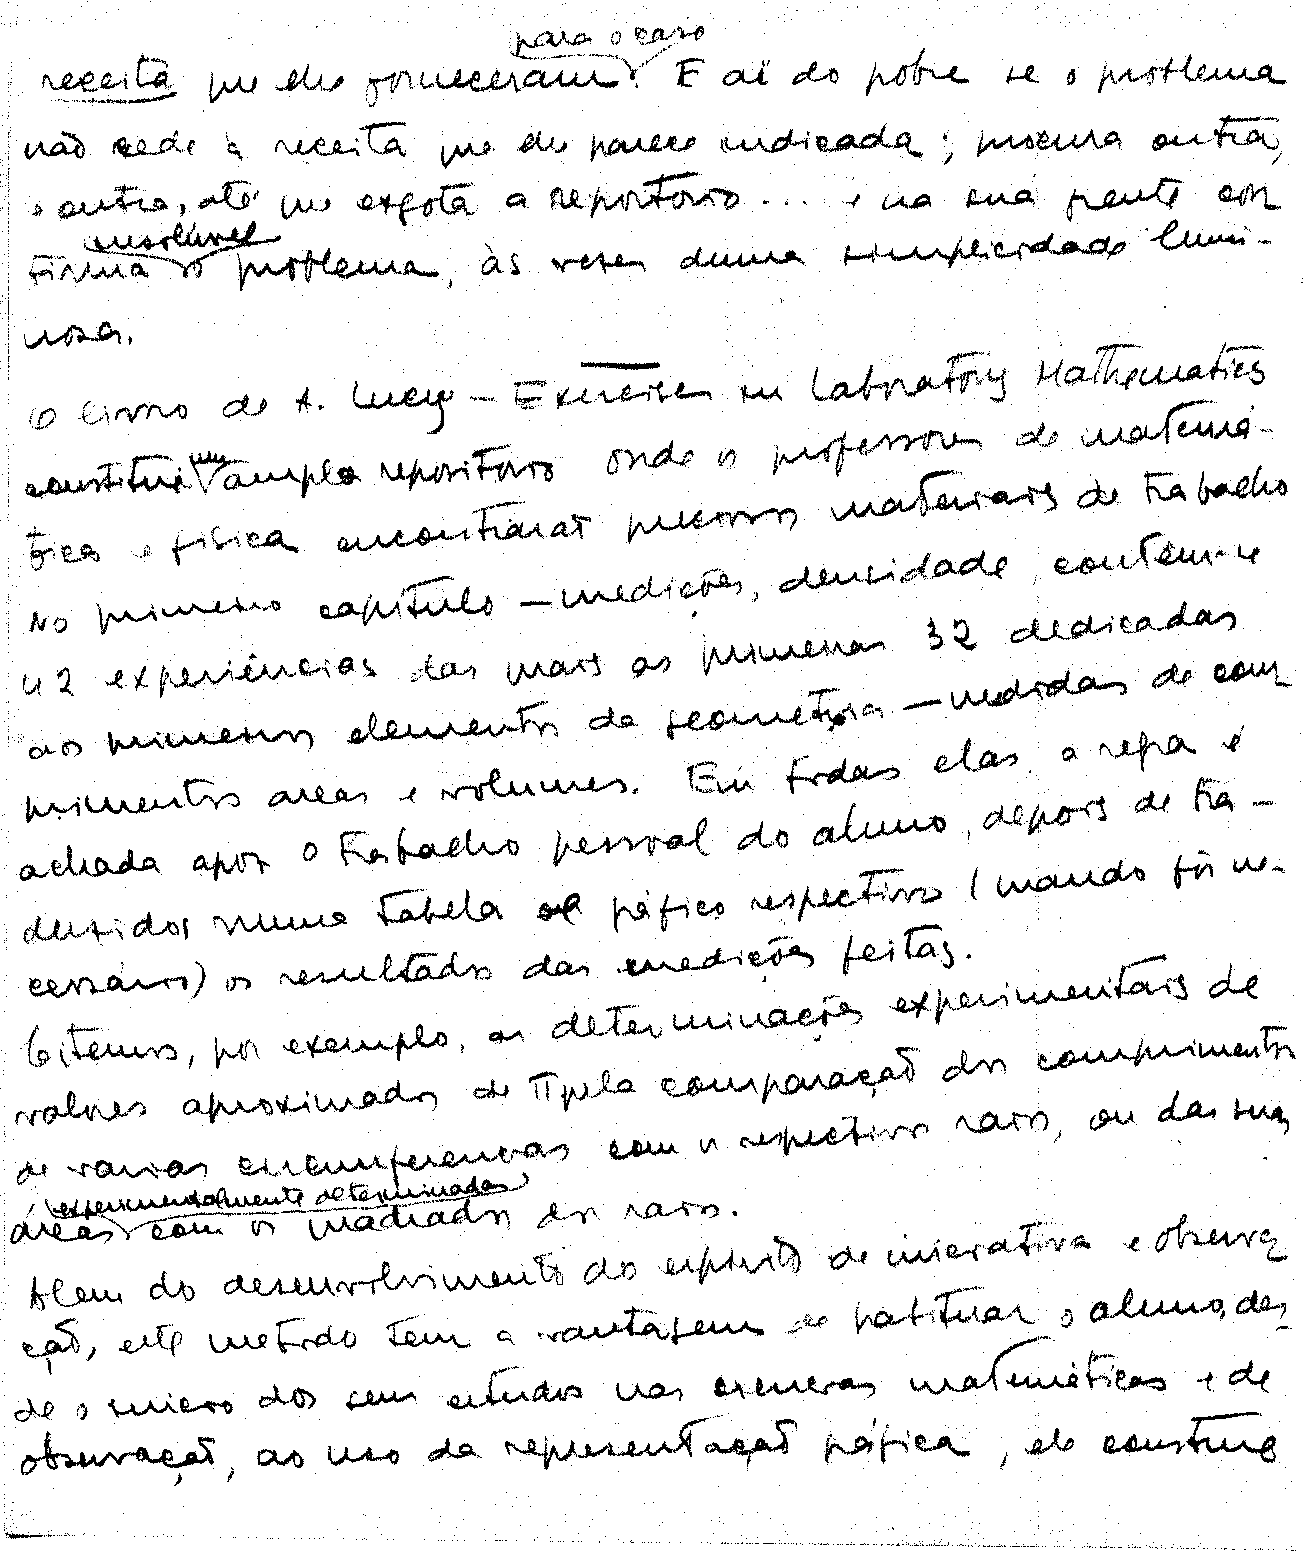 para o caso
receita que lhe forneceram. E ai do pobre se o problema
não cede à receita que lhe parece indicada; procura outra,
e outra, até que esgota o reportorio... e na sua frente con
insolúvel
tinua o problema, às vezes duma simplicidade lumi-
nosa.
O livro de A. Lucy — Exercises in Laboratory Mathematics
um
constitui amplo repositorio onde os professores de matemá-
tica e fisica encontrarão preciosos materiais de trabalho
No primeiro capítulo — medições, densidade, contem-se
42 experiências das quais as primeiras 32 dedicadas
aos primeiros elementos da geometria — medidas de com
primentos areas e volumes. Em todas elas a regra é
achada apos o trabalho pessoal do aluno, depois de tra-
duzidos numa tabela ou gráfico respectivo (quando fôr ne-
cessário) os resultados das medições feitas.
Citemos, por exemplo, as determinações experimentais de
valores aproximados de π pela comparação dos comprimentos
de varias circumferencias com os respectivos raios, ou das suas
experimentalmente determinadas
áreas com os quadrados dos raios.
Alem do desenvolvimento do espirito de iniciativa e observa
ção, este metodo tem a vantagem de habituar o aluno, des
de o inicio dos seus estudos nas ciencias matemáticas e de
observação, ao uso da representação gráfica, ele constrúe